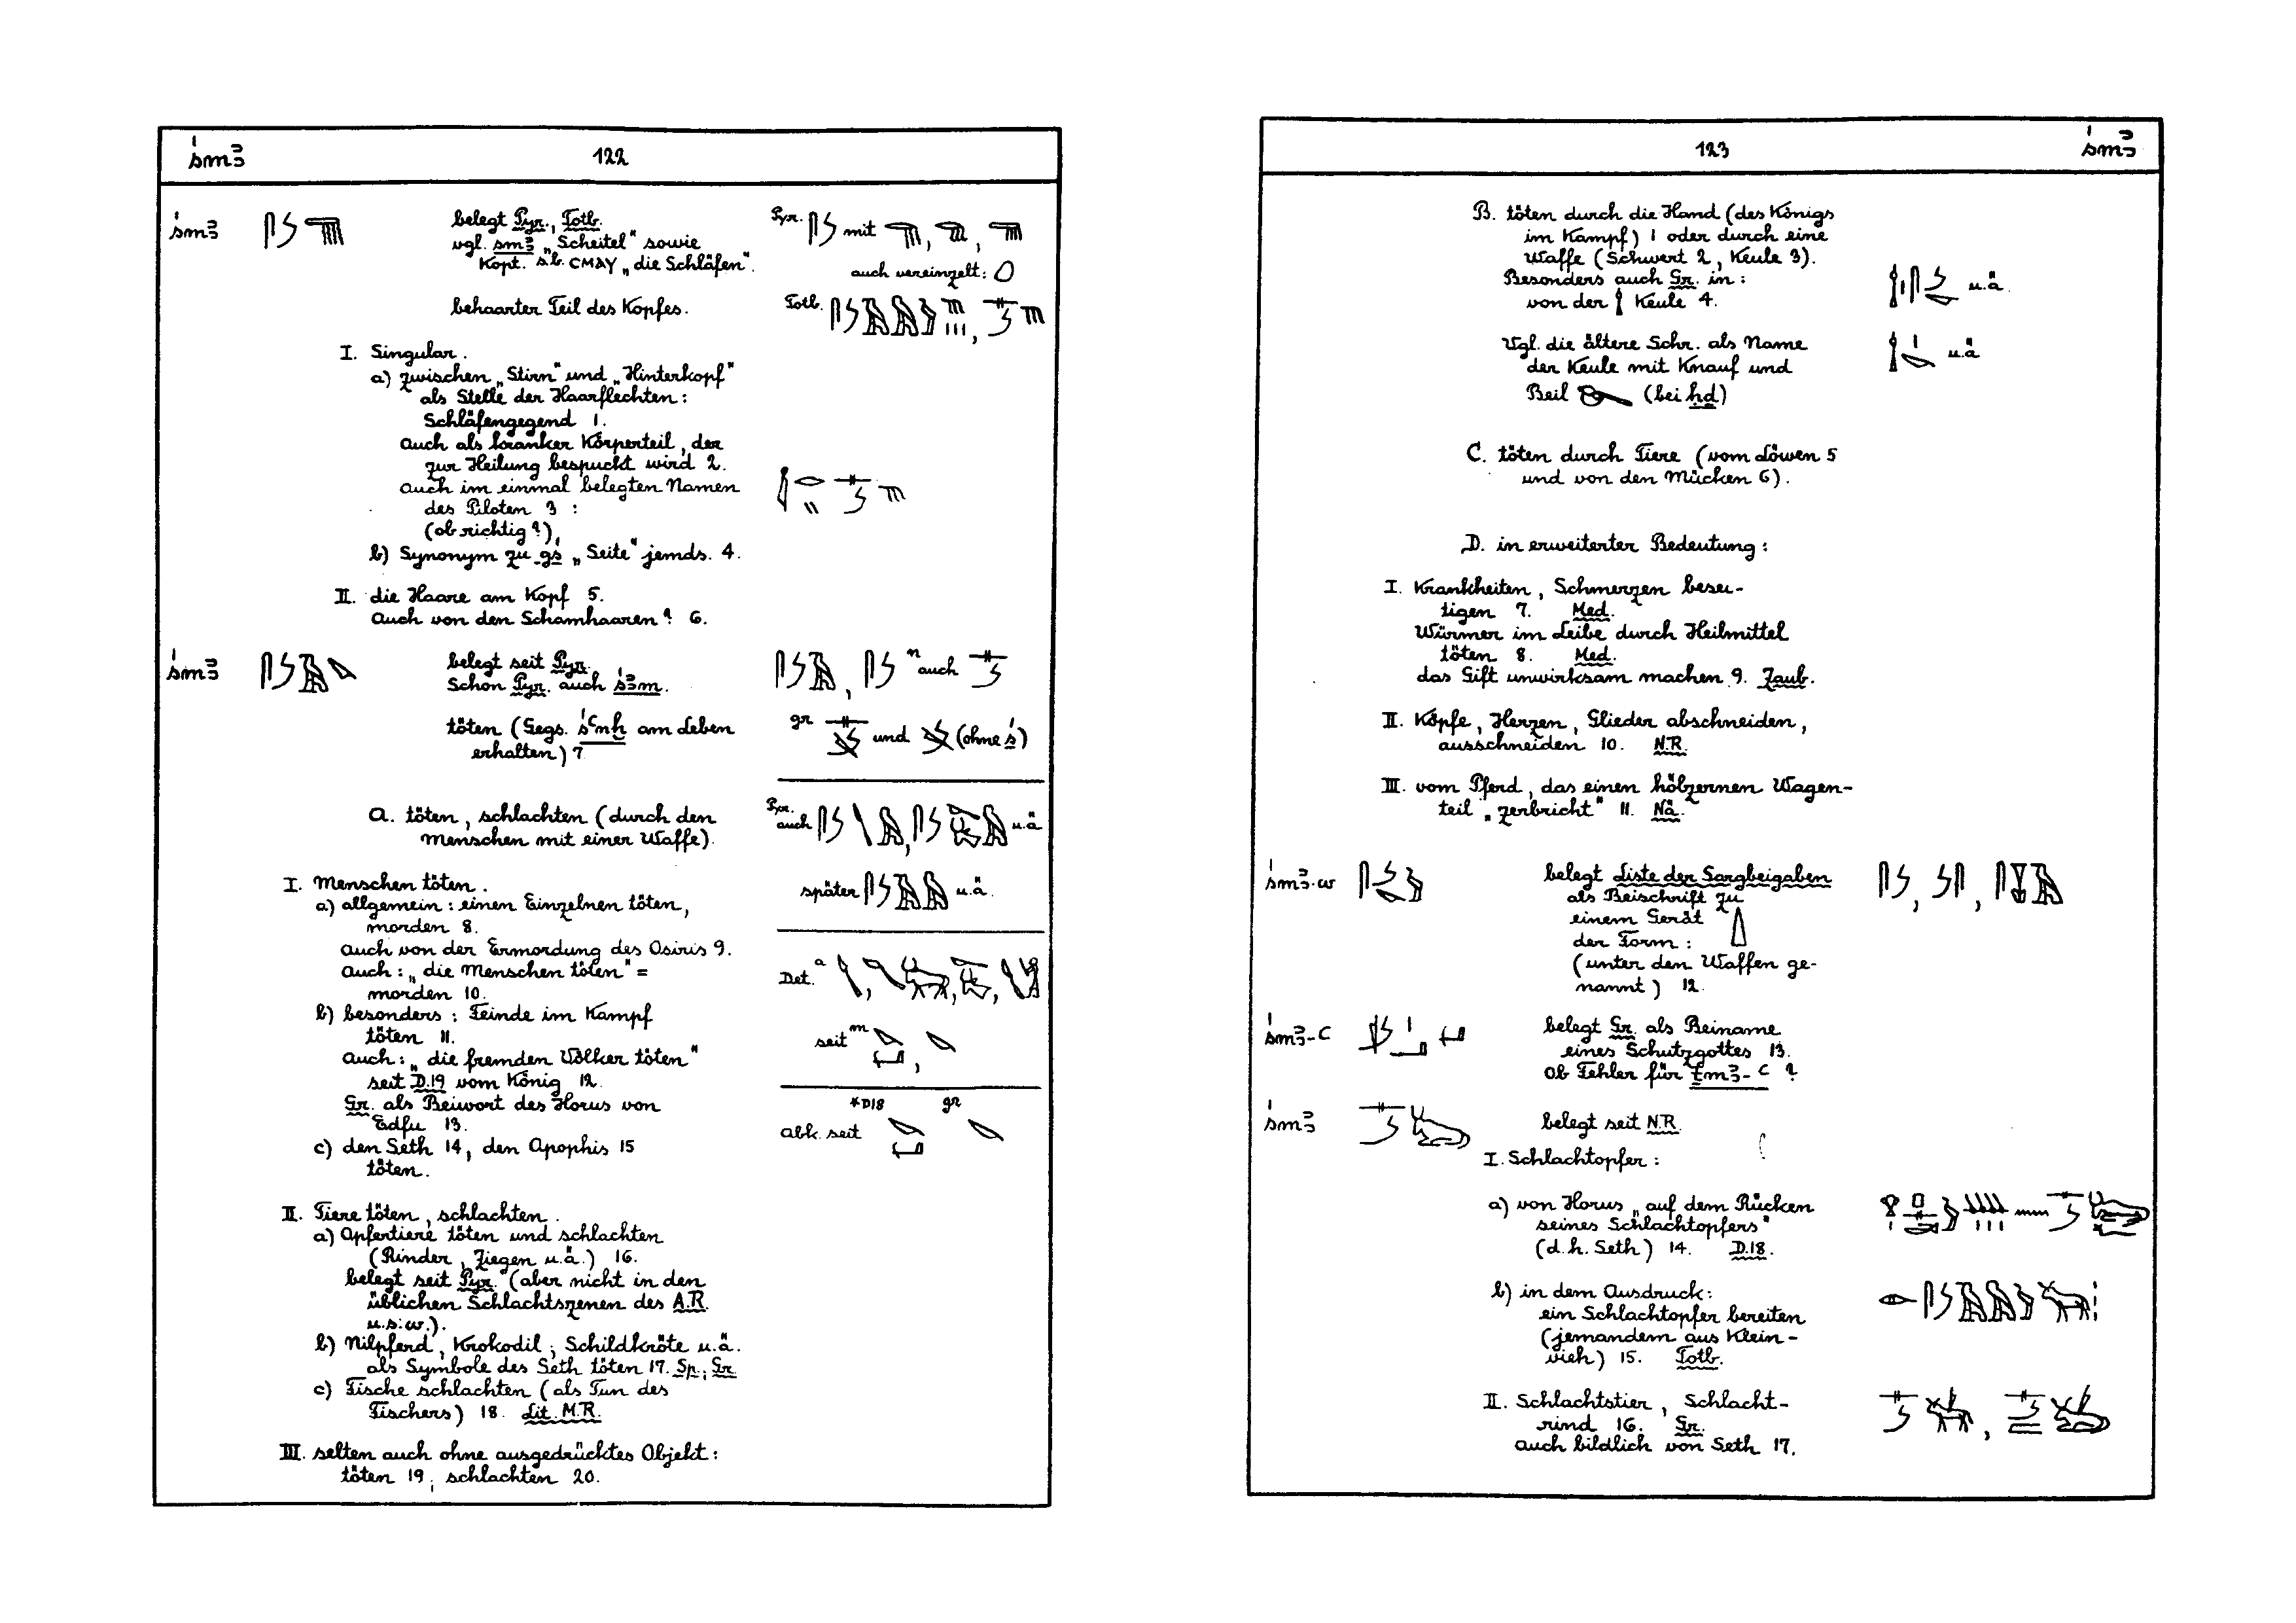 śmꜣ 122
śmꜣ
belegt Pyr., Totb.
vgl. smꜣ „Scheitel" sowie
Kopt. s.b. CMAY „die Schläfen".
Pyr. mit , ,
auch vereinzelt:
behaarter Teil des Kopfes.
Totb. ,
I. Singular.
a) zwischen „Stirn" und „Hinterkopf"
als Stelle der Haarflechten:
Schläfengegend 1.
auch als kranker Körperteil, der
zur Heilung bespuckt wird 2.
auch im einmal belegten Namen
des Piloten 3 :
(ob richtig?)
b) Synonym zu gś „Seite" jemds. 4.
II. die Haare am Kopf 5.
Auch von den Schamhaaren? 6.
śmꜣ
belegt seit Pyr.
Schon Pyr. auch śꜣm.
, n auch
töten (Gegs. śꜥnḫ am Leben
erhalten) 7
gr und (ohne ś)
A. töten, schlachten (durch den
Menschen mit einer Waffe).
Pyr. auch , u.ä
I. Menschen töten.
a) allgemein: einen Einzelnen töten,
morden 8.
später u.ä.
auch von der Ermordung des Osiris 9.
auch: „die Menschen töten" =
morden 10.
Det. a , , ,
b) besonders: Feinde im Kampf
töten 11.
seit m ,
auch: „die fremden Völker töten"
seit D.19 vom König 12.
Gr. als Beiwort des Horus von
Edfu 13.
*D18 gr
Abk. seit
c) den Seth 14, den Apophis 15
töten.
II. Tiere töten, schlachten.
a) Opfertiere töten und schlachten
(Rinder, Ziegen u.ä.) 16.
belegt seit Pyr. (aber nicht in den
üblichen Schlachtszenen des A.R.
u.s.w.).
b) Nilpferd, Krokodil, Schildkröte u.ä.
als Symbole des Seth töten 17. Sp., Gr.
c) Fische schlachten (als Tun des
Fischers) 18. Lit. M.R.
III. selten auch ohne ausgedrücktes Objekt:
töten 19, schlachten 20.
123 śmꜣ
B. töten durch die Hand (des Königs
im Kampf) 1 oder durch eine
Waffe (Schwert 2, Keule 3).
Besonders auch Gr. in:
von der Keule 4.
u.ä.
Vgl. die ältere Schr. als Name
der Keule mit Knauf und
Beil (bei ḥḏ)
u.ä
C. töten durch Tiere (vom Löwen 5
und von den Mücken 6).
D. in erweiterter Bedeutung:
I. Krankheiten, Schmerzen besei-
tigen 7. Med.
Würmer im Leibe durch Heilmittel
töten 8. Med.
das Gift unwirksam machen 9. Zaub.
II. Köpfe, Herzen, Glieder abschneiden,
ausschneiden 10. N.R.
III. vom Pferd, das einen hölzernen Wagen-
teil „zerbricht" 11. Nä.
śmꜣ.w
belegt Liste der Sargbeigaben
als Beischrift zu
einem Gerät
der Form:
(unter den Waffen ge-
nannt) 12.
, ,
śmꜣ-ꜥ
belegt Gr. als Beiname
eines Schutzgottes 13.
Ob Fehler für ṯmꜣ-ꜥ ?
śmꜣ
belegt seit N.R.
I. Schlachtopfer:
a) von Horus „auf dem Rücken
seines Schlachtopfers"
(d.h. Seth) 14. D.18.
b) in dem Ausdruck:
ein Schlachtopfer bereiten
(jemandem aus Klein-
vieh) 15. Totb.
II. Schlachtstier, Schlacht-
rind 16. Gr.
auch bildlich von Seth 17.
,